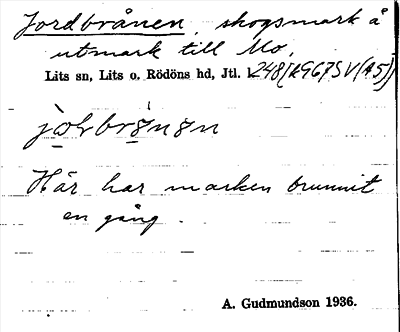 Jordbrånen, skogsmark å
utmark till Mo,
Lits sn, Lits o. Rödöns hd, Jtl. k
Här har marken brunnit
en gång.
A. Gudmundson 1936.